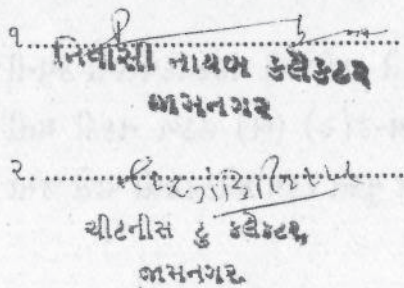 ૧....................................
નિવાસી નાયબ કલેકટર
જામનગર
૨....................................
ચીટનીસ ટુ કલેકટર,
જામનગર.